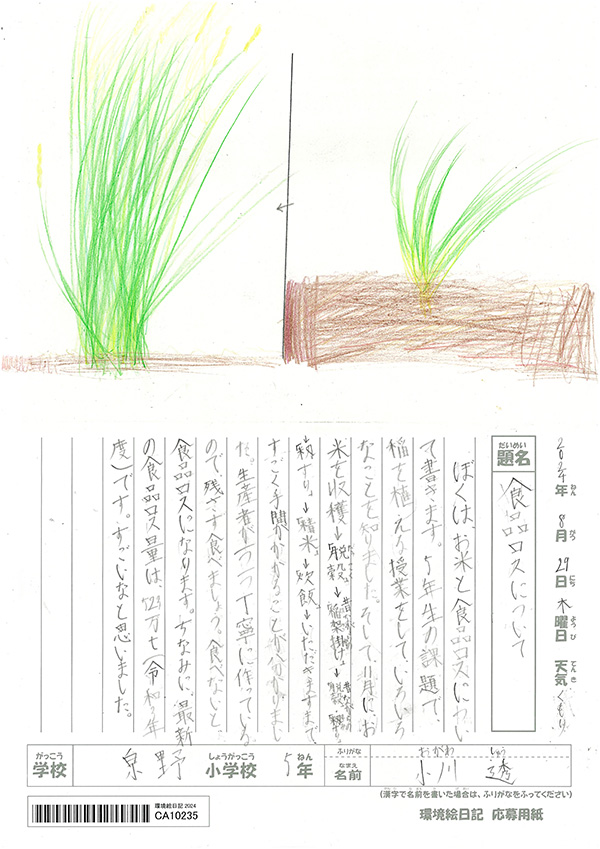 2024年 8月 29日 木曜日 天気 くもり
ねん がつ にち ようび てんき
だいめい
題名
食品ロスについて
ぼくは、お米と食品ロスについ
て書きます。5年生の課題で、
稲を植える授業をして、いろいろ
なことを知りました。そして、11月にお
米を収穫→脱穀→稲架掛け→脱穀・
→精米→炊飯→いただきますまで、
すごく手間がかかることが分かりまし
た。生産者が一つ一つ丁寧に作っている
ので、残さず食べましょう。食べないと、
食品ロスになります。ちなみに、最新
の食品ロス量は、523万t(令和3年
度)です。すごいなと思いました。
がっこう しょうがっこう ねん ふりがな おがわ しゅう
学校 泉野 小学校 5年 なまえ 名前 小川 透
(漢字で名前を書いた場合は、ふりがなをふってください)
環境絵日記 応募用紙
環境絵日記 2024
CA10235